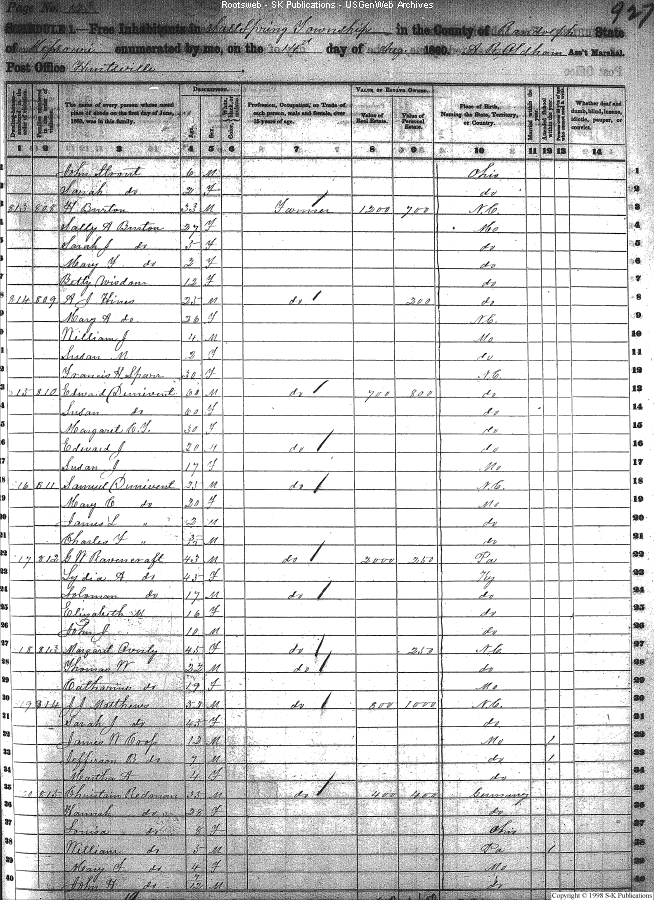 Rootsweb - SK Publications - USGenWeb Archives
Page No. 123
927
SCHEDULE 1.—Free Inhabitants in Salt Spring Township in the County of Randolph State
of Missouri enumerated by me, on the 14th day of Aug. 1860. Ass't Marshal.
Post Office Huntsville
The name of every person whose usual place of abode on the first day of June, 1860, was in this family.
Description.
Age. Sex.
Profession, Occupation, or Trade of each person, male and female, over 15 years of age.
Value of Estate Owned.
Value of Real Estate. Value of Personal Estate.
Place of Birth, Naming the State, Territory, or Country.
Whether deaf and dumb, blind, insane, idiotic, pauper, or convict.
1 2 3 4 5 6 7 8 9 10 11 12 13 14
1 John 6 M Ohio 1
Sariah do 2 F do 2
813 808 H Burton 33 M Farmer 1200 700 N.C. 3
Sally A Burton 27 F Mo 4
Sarah J do 5 F do 5
Mary F do 2 F do 6
Betty Wisdom 12 F do 7
814 809 A J Hines 25 M do 200 do 8
Mary A do 26 F N.C. 9
William J 4 M Mo 10
Susan M 2 F do 11
Francis H Sparr 30 F N.C. 12
15 810 Edward Dunivent 60 M do 700 800 do 13
Susan do 60 F do 14
Margaret 30 F do 15
Edward J 20 M do do 16
Susan J 17 F Mo 17
16 811 Samuel Dunivent 25 M do N.C. 18
Mary do 20 F Mo 19
James L " 2 M do 20
Charles F " M do 21
17 812 G W Ravencraft 43 M do 2000 250 Pa 22
Lydia A do 43 F Ky 23
Soloman do 17 M do do 24
Elizabeth M 16 F do 25
John J 10 M do 26
18 813 Margaret Overly 45 F do 250 N.C. 27
Thomas W 22 M do do 28
Catharine do 19 F Mo 29
19 814 J J Matthews 53 M do 800 1000 N.C. 30
Sarah J do 43 F do 31
James W 12 M Mo 1 32
Jefferson B do 7 M do 1 33
Martha A 4 F do 34
815 Christain Redmon 35 M do 400 400 Germany 35
Hannah do 28 F do 36
Louisa do 8 F Ohio 37
William do 5 M Pa 1 38
Mary F do 4 F Mo 39
John H do M do 40
Copyright © 1998 S-K Publications